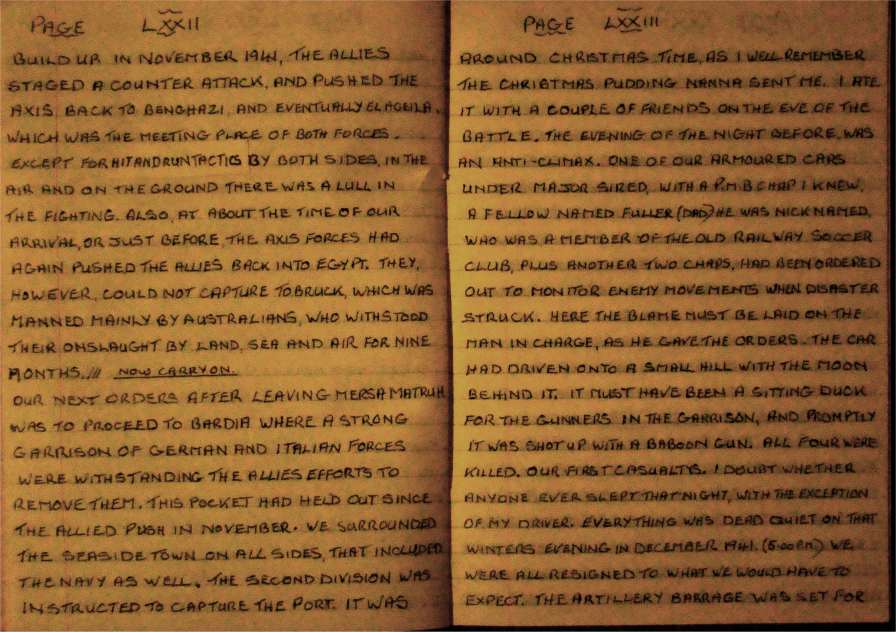 PAGE LXXII
BUILD UP IN NOVEMBER 1941, THE ALLIES
STAGED A COUNTER ATTACK, AND PUSHED THE
AXIS BACK TO BENGHAZI, AND EVENTUALLY EL AGEILA,
WHICH WAS THE MEETING PLACE OF BOTH FORCES.
EXCEPT FOR HIT AND RUN TACTICS BY BOTH SIDES, IN THE
AIR AND ON THE GROUND THERE WAS A LULL IN
THE FIGHTING. ALSO, AT ABOUT THE TIME OF OUR
ARRIVAL, OR JUST BEFORE, THE AXIS FORCES HAD
AGAIN PUSHED THE ALLIES BACK INTO EGYPT. THEY,
HOWEVER, COULD NOT CAPTURE TOBRUCK, WHICH WAS
MANNED MAINLY BY AUSTRALIANS, WHO WITHSTOOD
THEIR ONSLAUGHT BY LAND, SEA AND AIR FOR NINE
MONTHS./// NOW CARRY ON.
OUR NEXT ORDERS AFTER LEAVING MERSA MATRUH
WAS TO PROCEED TO BARDIA WHERE A STRONG
GARRISON OF GERMAN AND ITALIAN FORCES
WERE WITHSTANDING THE ALLIES EFFORTS TO
REMOVE THEM. THIS POCKET HAD HELD OUT SINCE
THE ALLIED PUSH IN NOVEMBER. WE SURROUNDED
THE SEASIDE TOWN ON ALL SIDES, THAT INCLUDED
THE NAVY AS WELL. THE SECOND DIVISION WAS
INSTRUCTED TO CAPTURE THE PORT. IT WAS
PAGE LXXIII
AROUND CHRISTMAS TIME, AS I WELL REMEMBER
THE CHRISTMAS PUDDING NANNA SENT ME. I ATE
IT WITH A COUPLE OF FRIENDS ON THE EVE OF THE
BATTLE. THE EVENING OF THE NIGHT BEFORE, WAS
AN ANTI-CLIMAX. ONE OF OUR ARMOURED CARS
UNDER MAJOR SIRED, WITH A P.M.B CHAP I KNEW,
A FELLOW NAMED FULLER (DAD) HE WAS NICKNAMED,
WHO WAS A MEMBER OF THE OLD RAILWAY SOCCER
CLUB, PLUS ANOTHER TWO CHAPS, HAD BEEN ORDERED
OUT TO MONITOR ENEMY MOVEMENTS WHEN DISASTER
STRUCK. HERE THE BLAME MUST BE LAID ON THE
MAN IN CHARGE, AS HE GAVE THE ORDERS. THE CAR
HAD DRIVEN ONTO A SMALL HILL WITH THE MOON
BEHIND IT. IT MUST HAVE BEEN A SITTING DUCK
FOR THE GUNNERS IN THE GARRISON, AND PROMPTLY
IT WAS SHOT UP WITH A BABOON GUN. ALL FOUR WERE
KILLED. OUR FIRST CASUALTYS. I DOUBT WHETHER
ANYONE EVER SLEPT THAT NIGHT, WITH THE EXCEPTION
OF MY DRIVER. EVERYTHING WAS DEAD QUIET ON THAT
WINTERS EVENING IN DECEMBER 1941. (5.00 P.M.) WE
WERE ALL RESIGNED TO WHAT WE WOULD HAVE TO
EXPECT. THE ARTILLERY BARRAGE WAS SET FOR